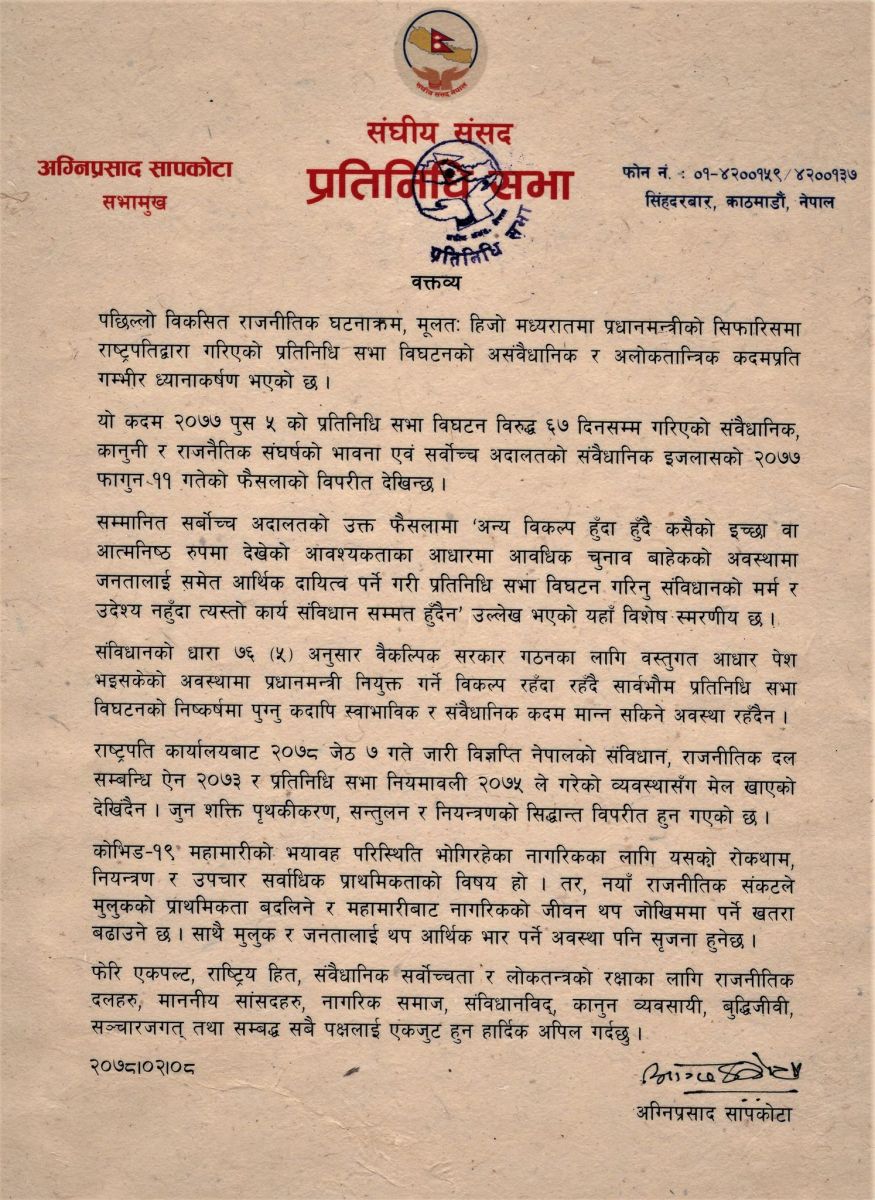 संघीय संसद नेपाल
संघीय संसद
प्रतिनिधि सभा
अग्निप्रसाद सापकोटा
सभामुख
फोन नं. : ०१-४२००१५९/४२००१३७
सिंहदरबार, काठमाडौं, नेपाल
प्रतिनिधि सभा
वक्तव्य
पछिल्लो विकसित राजनीतिक घटनाक्रम, मूलतः हिजो मध्यरातमा प्रधानमन्त्रीको सिफारिसमा
राष्ट्रपतिद्वारा गरिएको प्रतिनिधि सभा विघटनको असंवैधानिक र अलोकतान्त्रिक कदमप्रति
गम्भीर ध्यानाकर्षण भएको छ ।
यो कदम २०७७ पुस ५ को प्रतिनिधि सभा विघटन विरुद्ध ६७ दिनसम्म गरिएको संवैधानिक,
कानुनी र राजनैतिक संघर्षको भावना एवं सर्वोच्च अदालतको संवैधानिक इजलासको २०७७
फागुन ११ गतेको फैसलाको विपरीत देखिन्छ ।
सम्मानित सर्बोच्च अदालतको उक्त फैसलामा 'अन्य विकल्प हुँदा हुँदै कसैको इच्छा वा
आत्मनिष्ठ रुपमा देखेको आवश्यकताका आधारमा आवधिक चुनाव बाहेकको अवस्थामा
जनतालाई समेत आर्थिक दायित्व पर्ने गरी प्रतिनिधि सभा विघटन गरिनु संविधानको मर्म र
उदेश्य नहुँदा त्यस्तो कार्य संविधान सम्मत हुँदैन' उल्लेख भएको यहाँ विशेष स्मरणीय छ ।
संविधानको धारा ७६ (५) अनुसार वैकल्पिक सरकार गठनका लागि वस्तुगत आधार पेश
भइसकेको अवस्थामा प्रधानमन्त्री नियुक्त गर्ने विकल्प रहँदा रहँदै सार्वभौम प्रतिनिधि सभा
विघटनको निष्कर्षमा पुग्नु कदापि स्वाभाविक र संवैधानिक कदम मान्न सकिने अवस्था रहँदैन ।
राष्ट्रपति कार्यालयबाट २०७८ जेठ ७ गते जारी विज्ञप्ति नेपालको संविधान, राजनीतिक दल
सम्बन्धि ऐन २०७३ र प्रतिनिधि सभा नियमावली २०७५ ले गरेको व्यवस्थासँग मेल खाएको
देखिंदैन । जुन शक्ति पृथकीकरण, सन्तुलन र नियन्त्रणको सिद्धान्त विपरीत हुन गएको छ ।
कोभिड-१९ महामारीको भयावह परिस्थिति भोगिरहेका नागरिकका लागि यसको रोकथाम,
नियन्त्रण र उपचार सर्वाधिक प्राथमिकताको विषय हो । तर, नयाँ राजनीतिक संकटले
मुलुकको प्राथमिकता बदलिने र महामारीबाट नागरिकको जीवन थप जोखिममा पर्ने खतरा
बढाउने छ । साथै मुलुक र जनतालाई थप आर्थिक भार पर्ने अवस्था पनि सृजना हुनेछ ।
फेरि एकपल्ट, राष्ट्रिय हित, संवैधानिक सर्वोच्चता र लोकतन्त्रको रक्षाका लागि राजनीतिक
दलहरु, माननीय सांसदहरु, नागरिक समाज, संविधानविद्, कानुन व्यवसायी, बुद्धिजीवी,
सञ्चारजगत् तथा सम्बद्ध सबै पक्षलाई एकजुट हुन हार्दिक अपिल गर्दछु ।
२०७८।०२।०८
अग्निप्रसाद सापकोटा